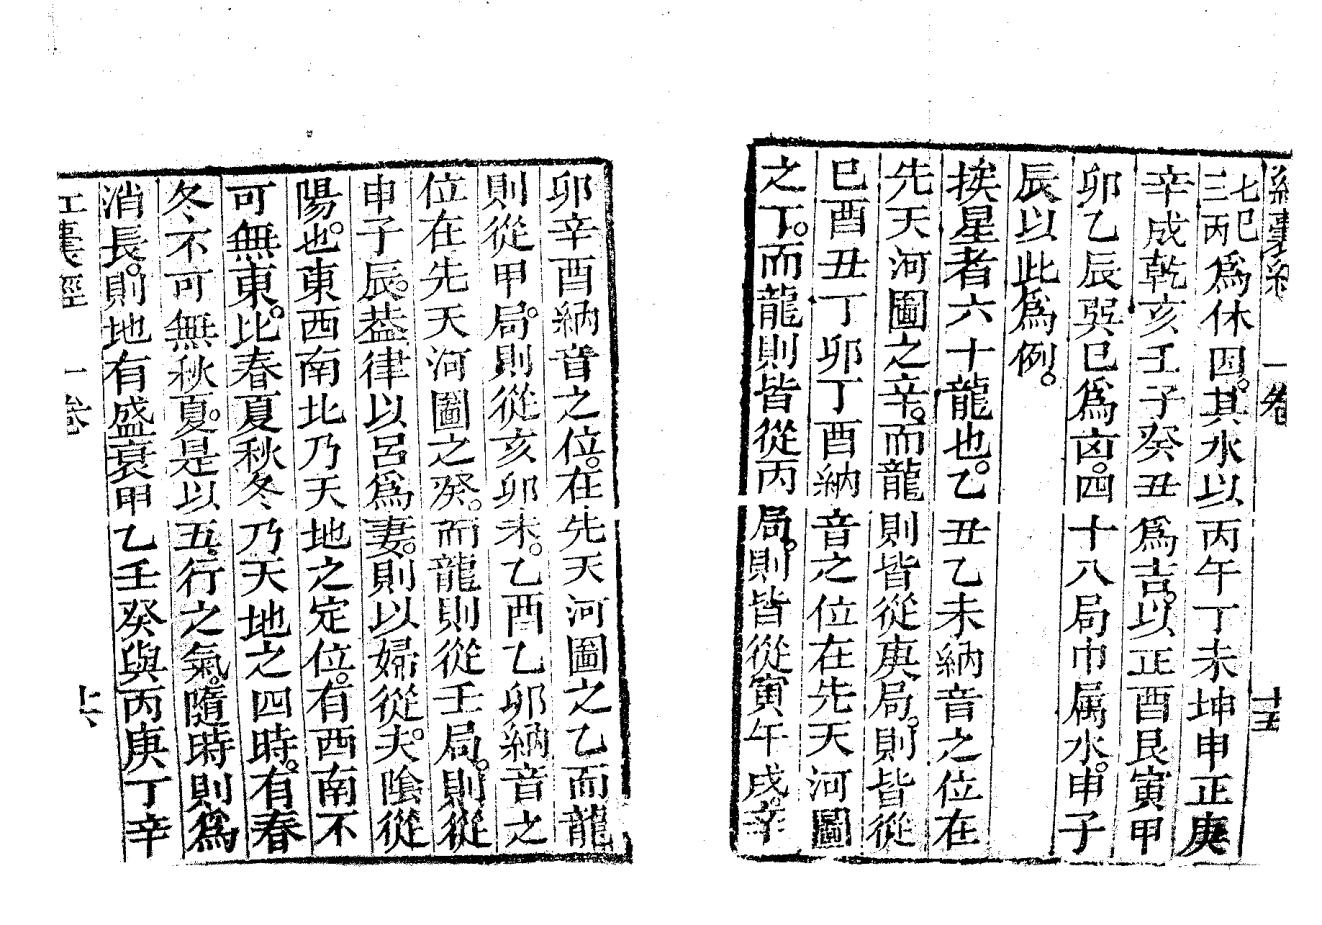 經 一卷 十五
七巳三丙爲休囚。其水以丙午丁未坤申正庚
辛戌乾亥壬子癸丑爲吉。以正酉艮寅甲
卯乙辰巽巳爲凶。四十八局巾属水。申子
辰以此爲例。
挨星者六十龍也。乙丑乙未納音之位在
先天河圖之辛。而龍則皆從庚局。則皆從
巳酉丑丁卯丁酉納音之位在先天河圖
之丁。而龍則皆從丙局。則皆從寅午戌。辛
卯辛酉納音之位。在先天河圖之乙而龍
則從甲局。則從亥卯未。乙酉乙卯納音之
位在先天河圖之癸。而龍則從壬局。則從
申子辰。葢律以呂爲妻。則以婦從夫。陰從
陽。也東西南北乃天地之定位。有西南不
可無東。比春夏秋冬乃天地之四時。有春
冬不可無秋夏。是以五行之氣。隨時則爲
消長。則地有盛衰甲乙壬癸與丙庚丁辛
囊經 一卷 十六